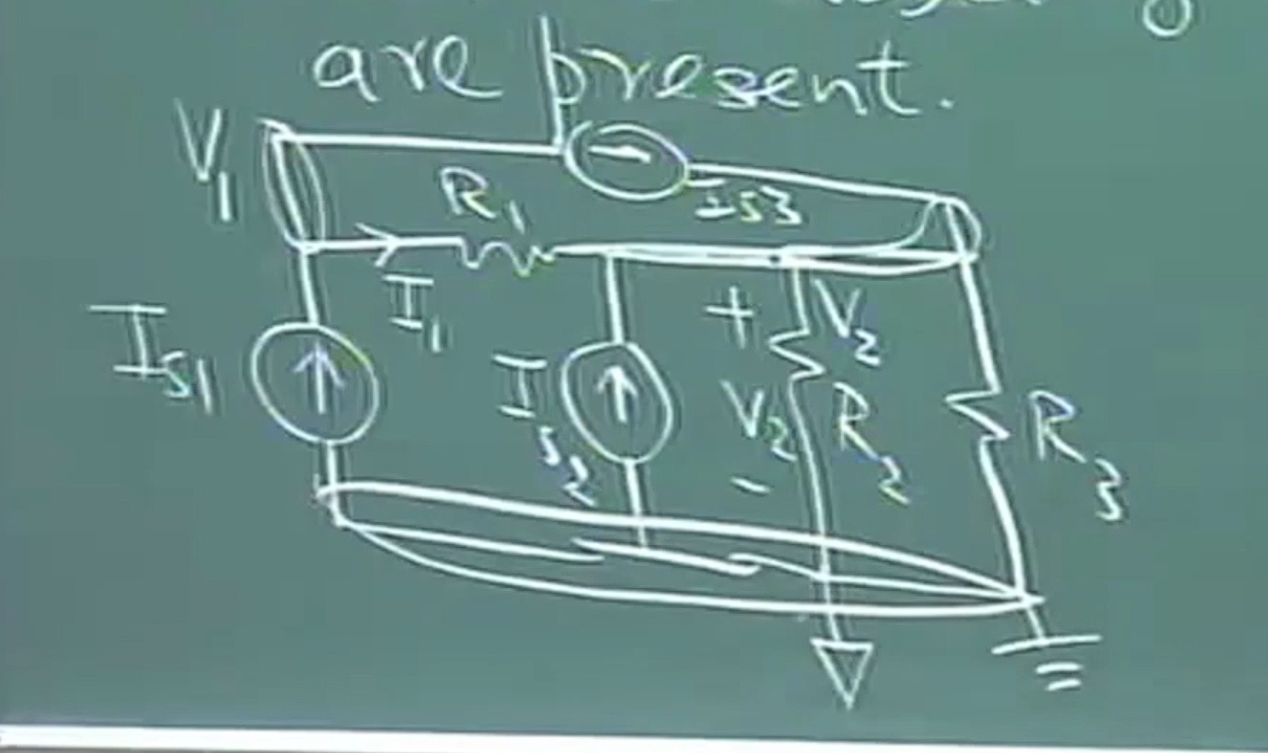 are present.
V1
R1
IS3
I1
+ V2
IS1
IS2
V2
R2
R3
-